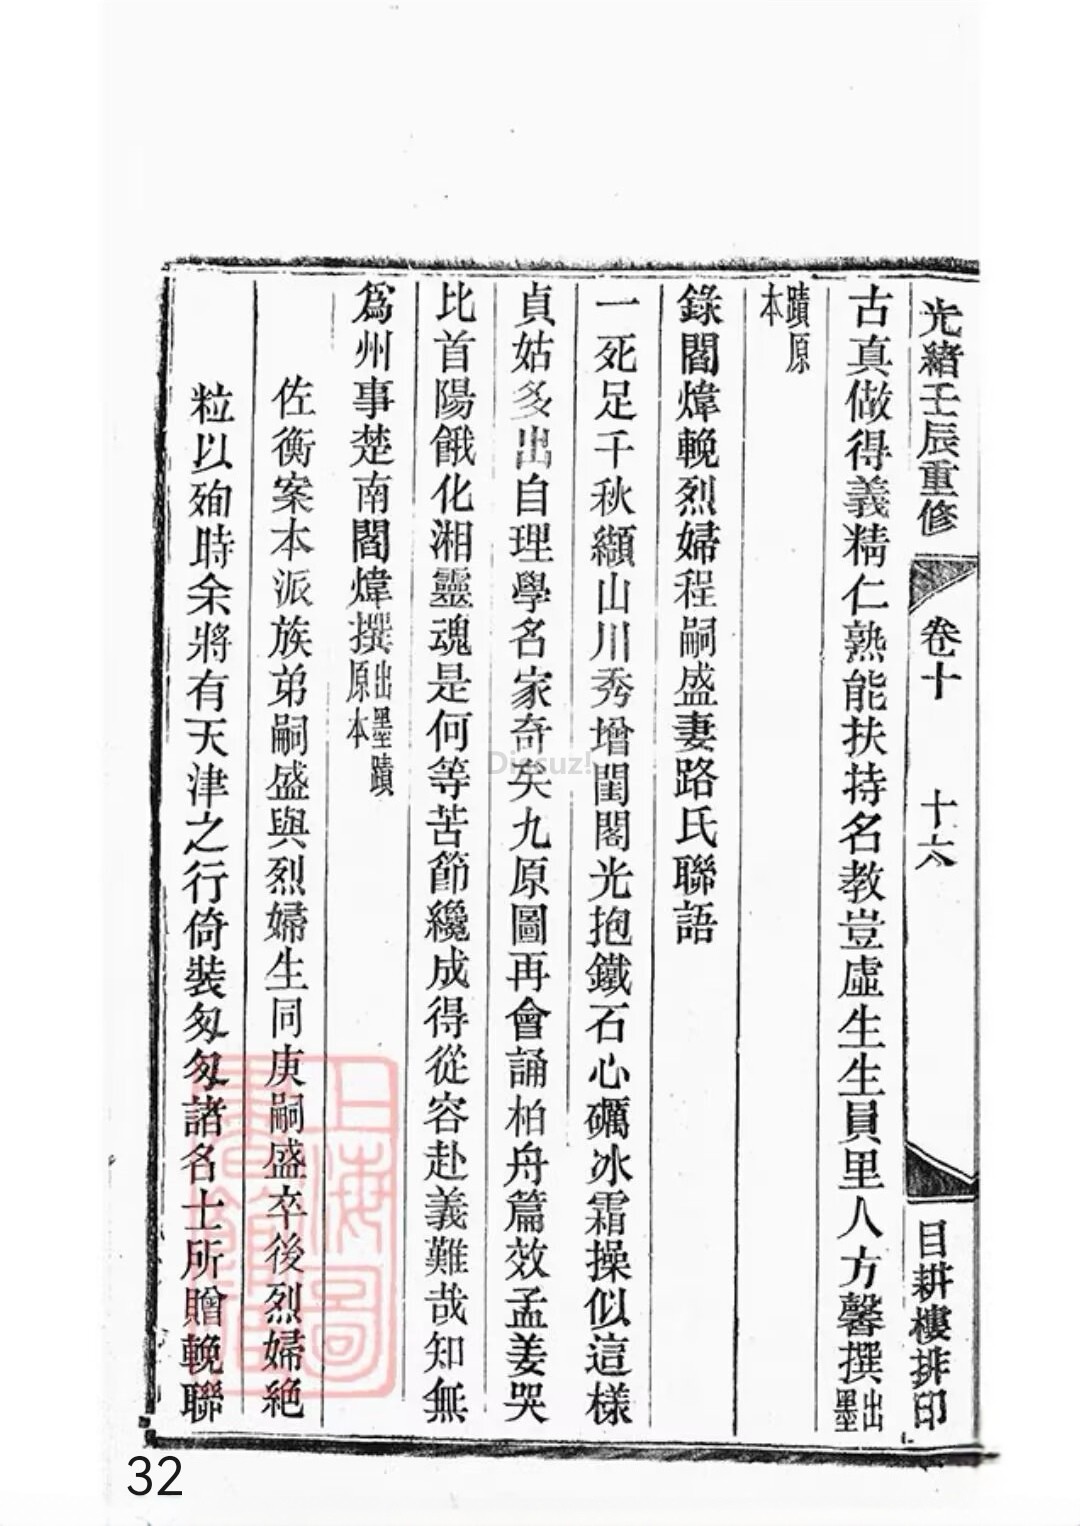 光緒壬辰重修
卷十
十六
目耕樓排印
古真做得義精仁熟能扶持名教豈虛生生員里人方馨撰出墨
蹟原本
錄閻煒輓烈婦程嗣盛妻路氏聯語
一死足千秋纈山川秀增閨閣光抱鐵石心礪冰霜操似這樣
貞姑多出自理學名家奇矣九原圖再會誦柏舟篇效孟姜哭
比首陽餓化湘靈魂是何等苦節纔成得從容赴義難哉知無
爲州事楚南閻煒撰出墨蹟原本
佐衡案本派族弟嗣盛與烈婦生同庚嗣盛卒後烈婦絶
粒以殉時余將有天津之行倚裝匆匆諸名士所贈輓聯
上海圖書館藏
Discuz!
32